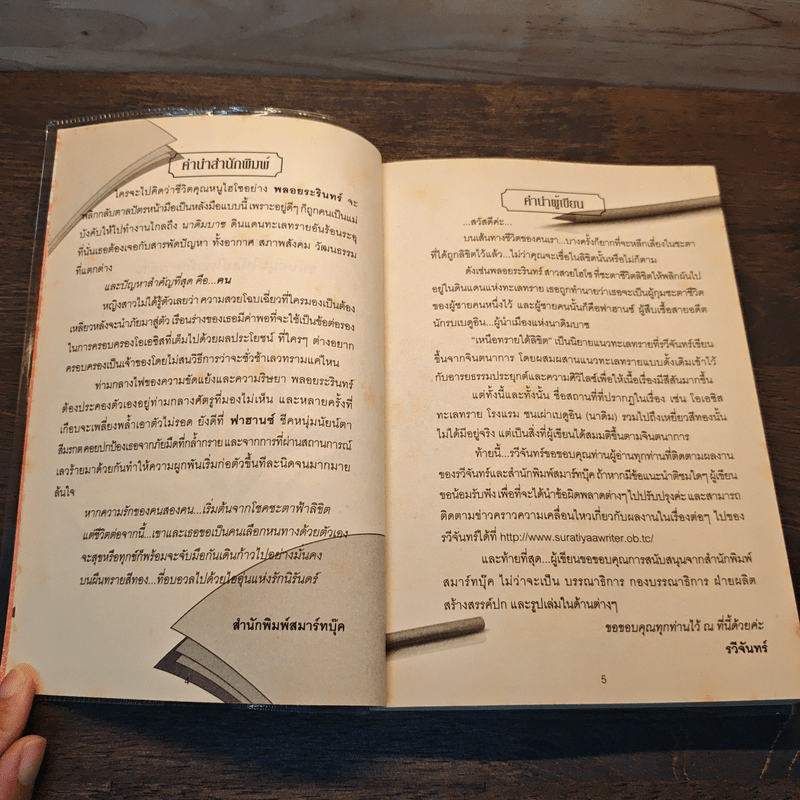 คำนำสำนักพิมพ์
ใครจะไปคิดว่าชีวิตคุณหนูไฮโซอย่าง พลอยระรินทร์ จะ
พลิกกลับตาลปัตรหน้ามือเป็นหลังมือแบบนี้ เพราะอยู่ดีๆ ก็ถูกคนเป็นแม่
บังคับให้ไปทำงานไกลถึง นาดิมบาซ ดินแดนทะเลทรายอันร้อนระอุ
ที่นั่นเธอต้องเจอกับสารพัดปัญหา ทั้งอากาศ สภาพสังคม วัฒนธรรม
ที่แตกต่าง
และปัญหาสำคัญที่สุด คือ...คน
หญิงสาวไม่ได้รู้ตัวเลยว่า ความสวยโฉบเฉี่ยวที่ใครมองเป็นต้อง
เหลียวหลังจะนำภัยมาสู่ตัว เรือนร่างของเธอมีค่าพอที่จะใช้เป็นข้อต่อรอง
ในการครอบครองโอเอซิสที่เต็มไปด้วยผลประโยชน์ ที่ใครๆ ต่างอยาก
ครอบครองเป็นเจ้าของโดยไม่สนวิธีการว่าจะชั่วช้าเลวทรามแค่ไหน
ท่ามกลางไฟของความขัดแย้งและความริษยา พลอยระรินทร์
ต้องประคองตัวเองอยู่ท่ามกลางศัตรูที่มองไม่เห็น และหลายครั้งที่
เกือบจะเพลี่ยงพล้ำเอาตัวไม่รอด ยังดีที่ ฟาฮานซ์ ชีคหนุ่มนัยน์ตา
สีมรกต คอยปกป้องเธอจากภัยมืดที่กล้ำกราย และจากการที่ผ่านสถานการณ์
เลวร้ายมาด้วยกันทำให้ความผูกพันเริ่มก่อตัวขึ้นทีละนิดจนมากมาย
ล้นใจ
หากความรักของคนสองคน...เริ่มต้นจากโชคชะตาฟ้าลิขิต
แต่ชีวิตต่อจากนี้...เขาและเธอขอเป็นคนเลือกหนทางด้วยตัวเอง
จะสุขหรือทุกข์ก็พร้อมจะจับมือกันเดินก้าวไปอย่างมั่นคง
บนผืนทรายสีทอง...ที่อบอวลไปด้วยไออุ่นแห่งรักนิรันดร์
สำนักพิมพ์สมาร์ทบุ๊ค
4
คำนำผู้เขียน
...สวัสดีค่ะ...
บนเส้นทางชีวิตของคนเรา...บางครั้งก็ยากที่จะหลีกเลี่ยงในชะตา
ที่ได้ถูกลิขิตไว้แล้ว...ไม่ว่าคุณจะเชื่อในลิขิตนั้นหรือไม่ก็ตาม
ดังเช่นพลอยระรินทร์ สาวสวยไฮโซ ที่ชะตาชีวิตลิขิตให้พลิกผันไป
อยู่ในดินแดนแห่งทะเลทราย เธอถูกทำนายว่าเธอจะเป็นผู้กุมชะตาชีวิต
ของผู้ชายคนหนึ่งไว้ และผู้ชายคนนั้นก็คือฟาฮานซ์ ผู้สืบเชื้อสายอดีต
นักรบเบดูอิน...ผู้นำเมืองแห่งนาดิมบาซ
“เหนือทรายใต้ลิขิต” เป็นนิยายแนวทะเลทรายที่รวีจันทร์เขียน
ขึ้นจากจินตนาการ โดยผสมผสานแนวทะเลทรายแบบดั้งเดิมเข้าไว้
กับอารยธรรมประยุกต์และความศิวิไลซ์เพื่อให้เนื้อเรื่องมีสีสันมากขึ้น
แต่ทั้งนี้และทั้งนั้น ชื่อสถานที่ที่ปรากฏในเรื่อง เช่น โอเอซิส
ทะเลทราย โรงแรม ชนเผ่าเบดูอิน (นาดิม) รวมไปถึงเหยี่ยวสีทองนั้น
ไม่ได้มีอยู่จริง แต่เป็นสิ่งที่ผู้เขียนได้สมมติขึ้นตามจินตนาการ
ท้ายนี้...รวีจันทร์ขอขอบคุณท่านผู้อ่านทุกท่านที่ติดตามผลงาน
ของรวีจันทร์และสำนักพิมพ์สมาร์ทบุ๊ค ถ้าหากมีข้อแนะนำติชมใดๆ ผู้เขียน
ขอน้อมรับฟัง เพื่อที่จะได้นำข้อผิดพลาดต่างๆ ไปปรับปรุงค่ะ และสามารถ
ติดตามข่าวคราวความเคลื่อนไหวเกี่ยวกับผลงานในเรื่องต่อๆ ไปของ
รวีจันทร์ได้ที่ http://www.suratiyaawriter.ob.tc/
และท้ายที่สุด...ผู้เขียนขอขอบคุณการสนับสนุนจากสำนักพิมพ์
สมาร์ทบุ๊ค ไม่ว่าจะเป็น บรรณาธิการ กองบรรณาธิการ ฝ่ายผลิต
สร้างสรรค์ปก และรูปเล่มในด้านต่างๆ
ขอขอบคุณทุกท่านไว้ ณ ที่นี้ด้วยค่ะ
รวีจันทร์
5